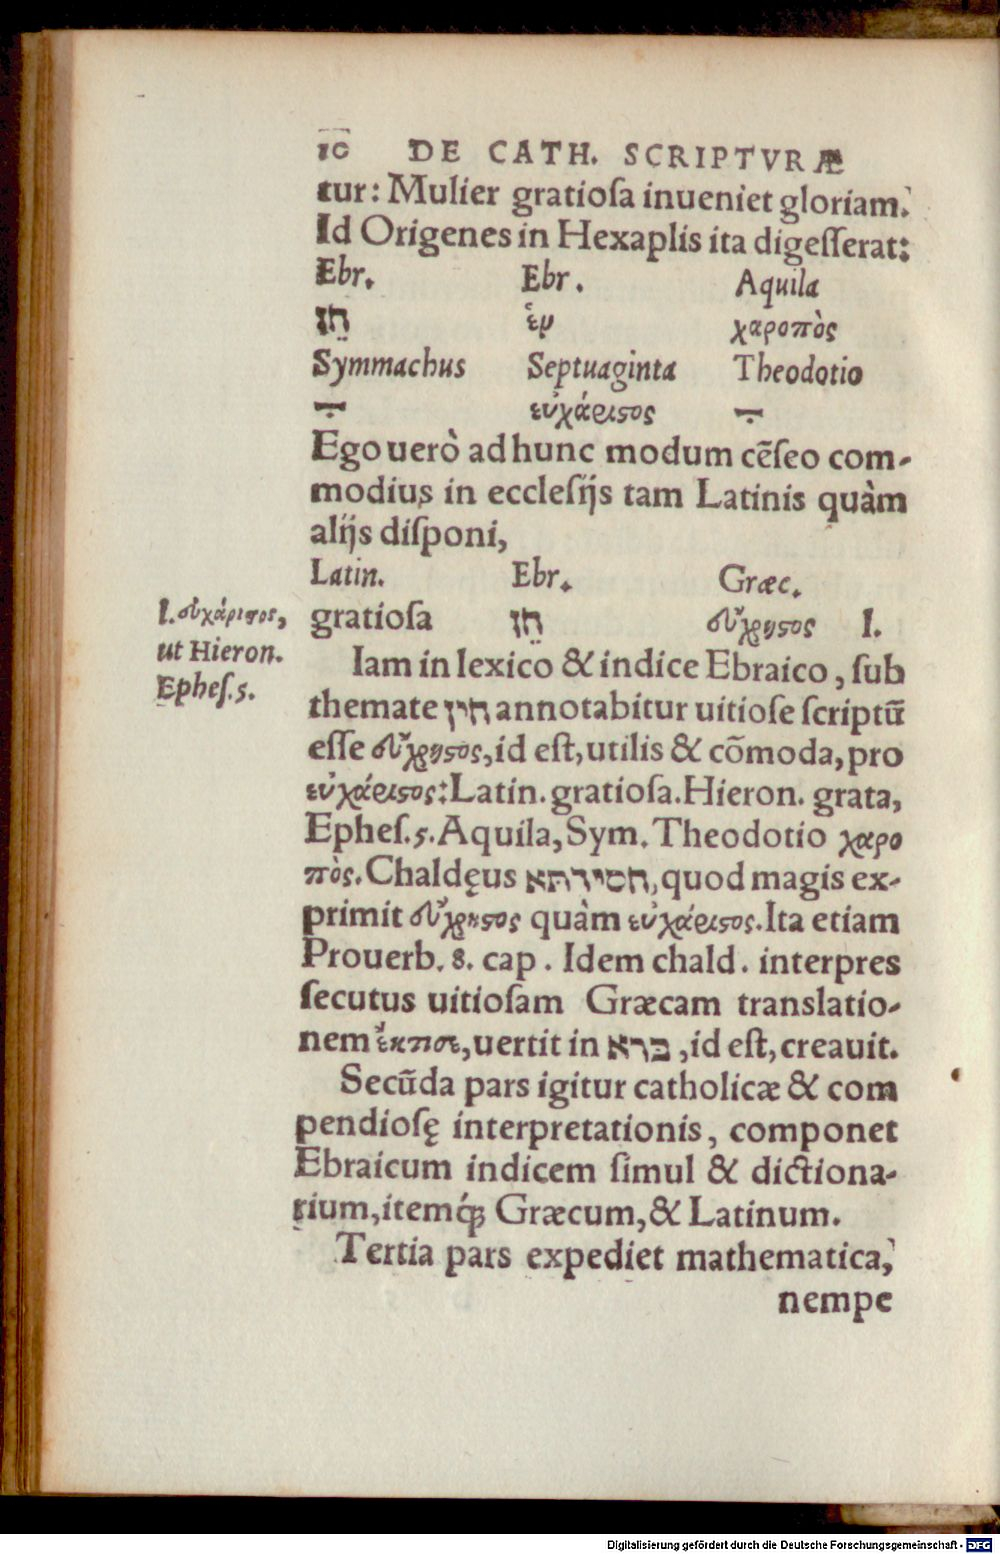 10 DE CATH. SCRIPTVRÆ
tur: Mulier gratiosa inueniet gloriam.
Id Origenes in Hexaplis ita digesserat:
Ebr. Ebr. Aquila
חֵן ἑν χαροπὸς
Symmachus Septuaginta Theodotio
εὐχάριςος
Ego uerò ad hunc modum cẽseo com-
modius in ecclesijs tam Latinis quàm
alijs disponi,
Latin. Ebr. Græc.
gratiosa חֵן εὔχρηςος I.
I. εὐχάριςος,
ut Hieron.
Ephes.5.
Iam in lexico & indice Ebraico, sub
themate חין annotabitur uitiose scriptũ
esse εὔχρηςος, id est, utilis & cõmoda, pro
εὐχάριςος: Latin. gratiosa. Hieron. grata,
Ephes.5. Aquila, Sym. Theodotio χαρο
πὸς. Chaldęus חסידתא, quod magis ex-
primit εὔχρηςος quàm εὐχάριςος. Ita etiam
Prouerb. 8. cap. Idem chald. interpres
secutus uitiosam Græcam translatio-
nem ἔκτισε, uertit in ברא, id est, creauit.
Secũda pars igitur catholicæ & com
pendiosę interpretationis, componet
Ebraicum indicem simul & dictiona-
rium, itemq́; Græcum, & Latinum.
Tertia pars expediet mathematica,
nempe
Digitalisierung gefördert durch die Deutsche Forschungsgemeinschaft - DFG